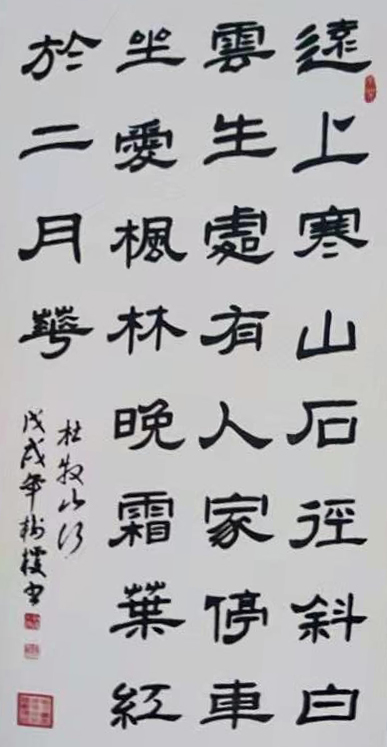 遠上寒山石徑斜白
雲生處有人家停車
坐愛楓林晚霜葉紅
於二月華
杜牧山行
戊戌年樹樸書